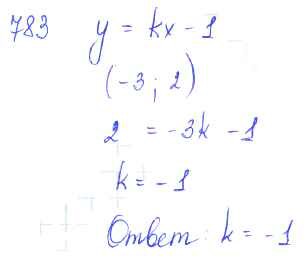 783 y = kx - 1
(-3 ; 2)
2 = -3k - 1
k = -1
Ответ: k = -1